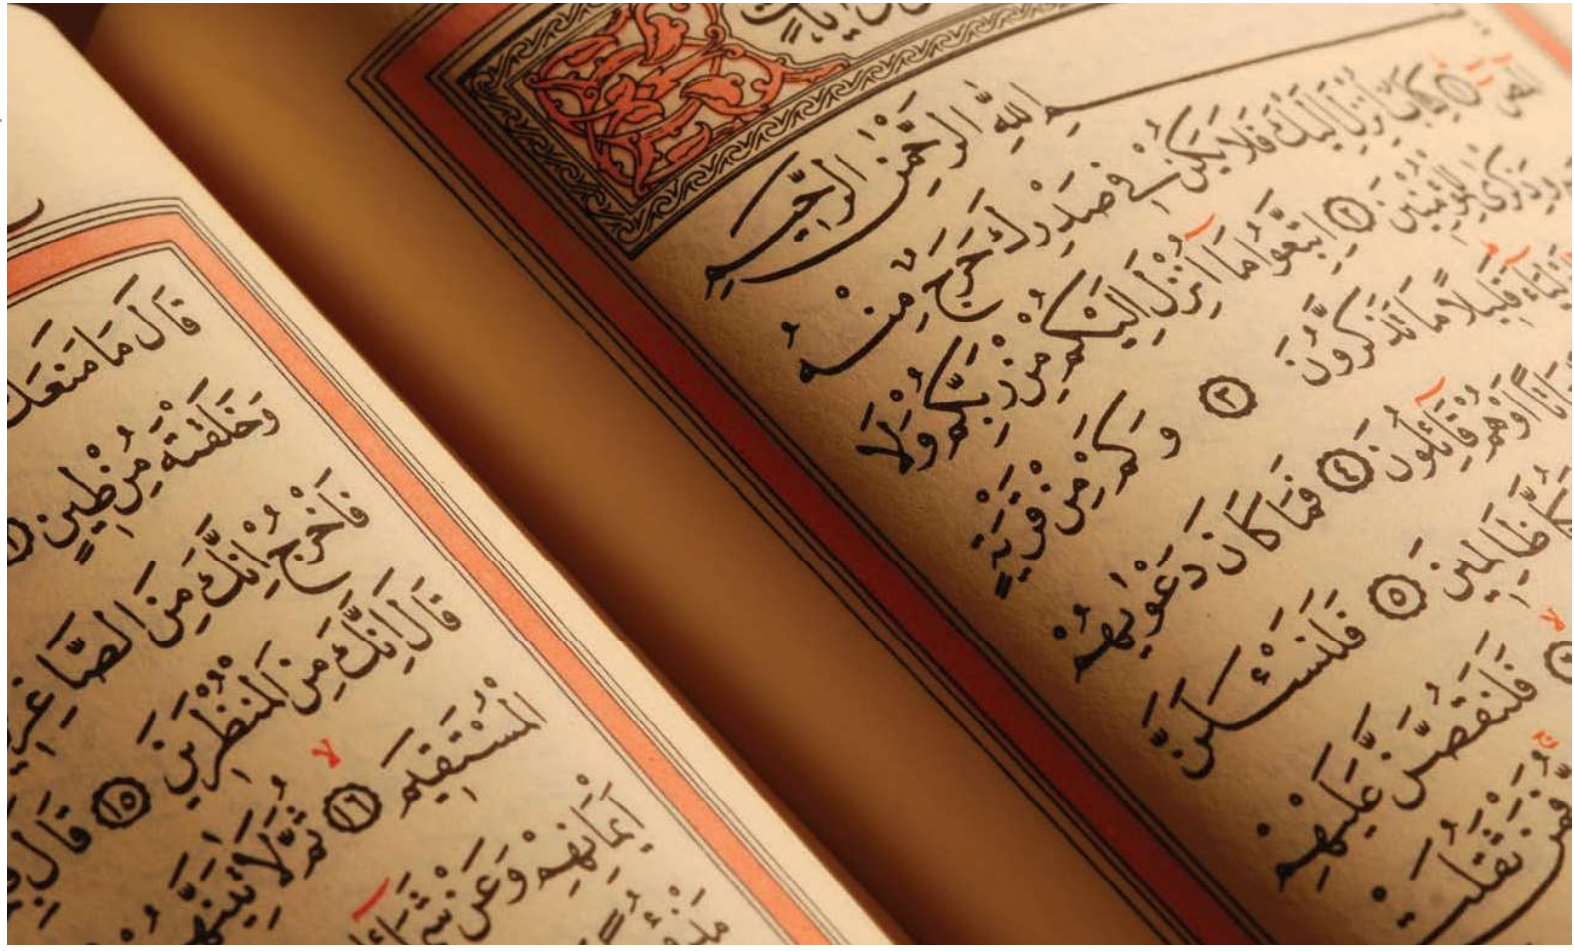 بِسْمِ اللّٰهِ الرَّحْمٰنِ الرَّحِيمِ
الٓمٓصٓ ۝١ كِتَابٌ اُنْزِلَ اِلَيْكَ فَلَا يَكُنْ فِى صَدْرِكَ حَرَجٌ مِنْهُ
وَذِكْرٰى لِلْمُؤْمِنِينَ ۝٢ اِتَّبِعُوا مَٓا اُنْزِلَ اِلَيْكُمْ مِنْ رَبِّكُمْ وَلَا
قَلِيلًا مَا تَذَكَّرُونَ ۝٣ وَكَمْ مِنْ قَرْيَةٍ
اَوْ هُمْ قَٓائِلُونَ ۝٤ فَمَا كَانَ دَعْوٰيهُمْ
ظَالِمِينَ ۝٥ فَلَنَسْـَٔلَنَّ
فَلَنَقُصَّنَّ عَلَيْهِمْ
فَمَنْ ثَقُلَتْ
قَالَ مَا مَنَعَكَ
وَخَلَقْتَهُ مِنْ طِينٍ
فَاخْرُجْ اِنَّكَ مِنَ الصَّاغِرِينَ
قَالَ اِنَّكَ مِنَ الْمُنْظَرِينَ ۝١٥ قَالَ
الْمُسْتَقِيمَ ۝١٦ ثُمَّ لَاٰتِيَنَّهُمْ
اَيْمَانِهِمْ وَعَنْ